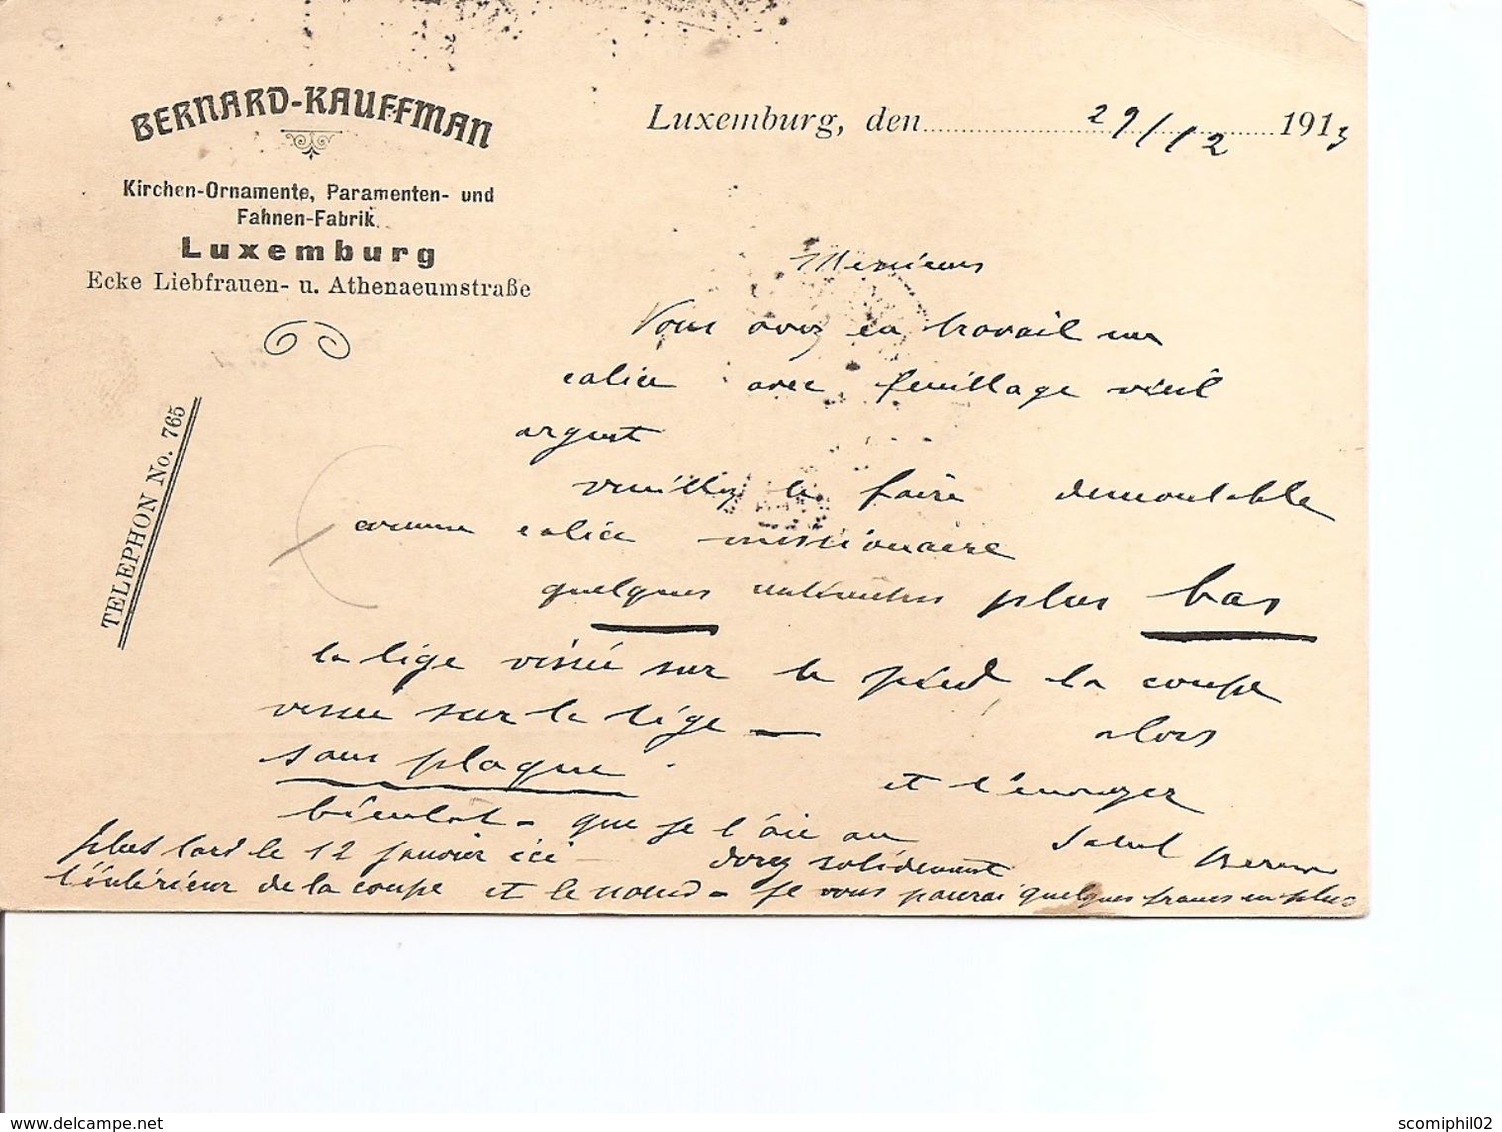 BERNARD-KAUFFMAN
Kirchen-Ornamente, Paramenten- und
Fahnen-Fabrik
Luxemburg
Ecke Liebfrauen- u. Athenaeumstraße
TELEPHON No. 765
Luxemburg, den 29/12 1913
Messieurs
Vous avez en travail un
calice avec feuillage vieil
argent
veuillez le faire demontable
comme calice missionaire
quelques centimetres plus bas
la tige vissée sur le pied la coupe
vissee sur la tige — alors
sans plaque. et l'envoyer
bientot - que je l'aie au
plus tard le 12 janvier ici - dorez solidement
Salut
l'intérieur de la coupe et le noeud - je vous paierai quelques francs en plus
www.delcampe.net
scomiphil02